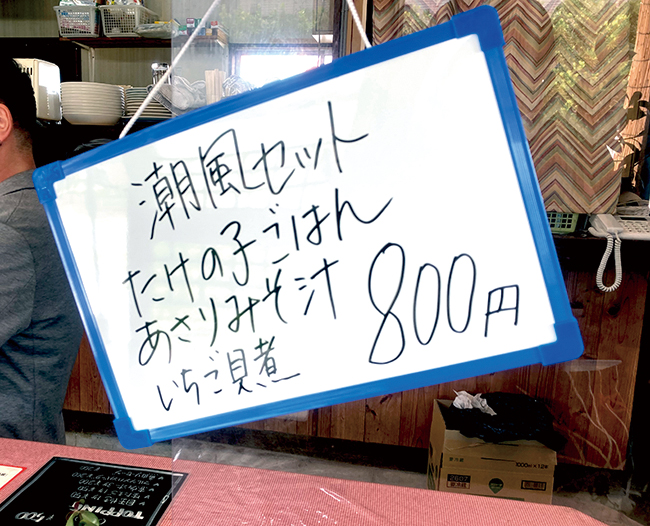 潮風セット
たけの子ごはん
あさりみそ汁
いちご貝煮
800円
TOPPING